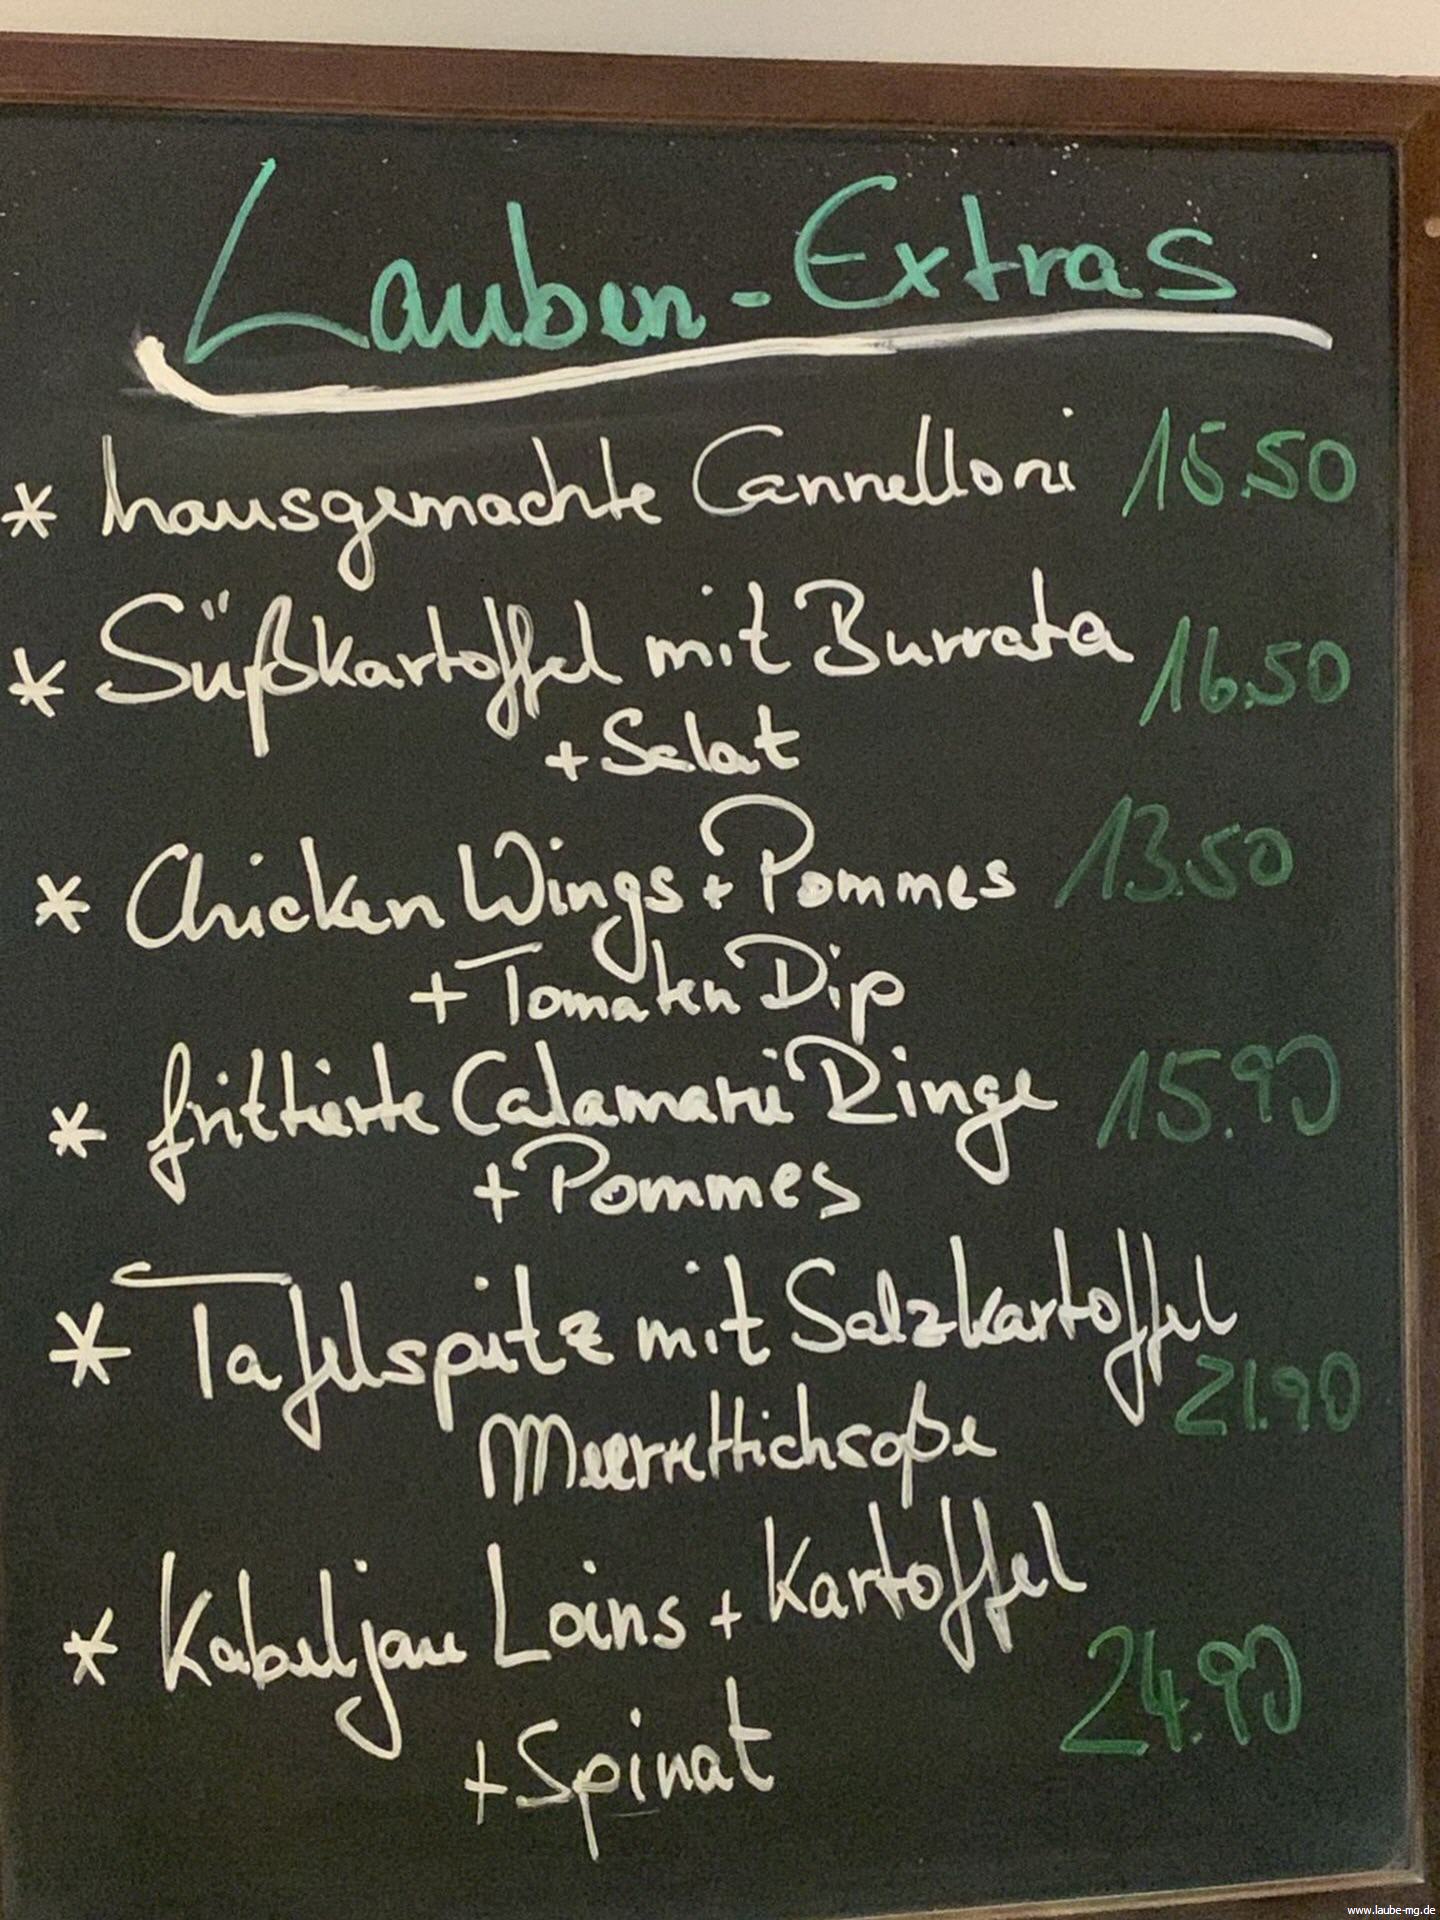 Lauben-Extras
* hausgemachte Cannelloni 15.50
* Süßkartoffel mit Burrata 16.50
+ Salat
* Chicken Wings + Pommes 13.50
+ Tomaten Dip
* frittierte Calamari Ringe 15.90
+ Pommes
* Tafelspitz mit Salzkartoffel
Meerrettichsoße 21.90
* Kabeljau Loins + Kartoffel
+ Spinat 24.90
www.laube-mg.de